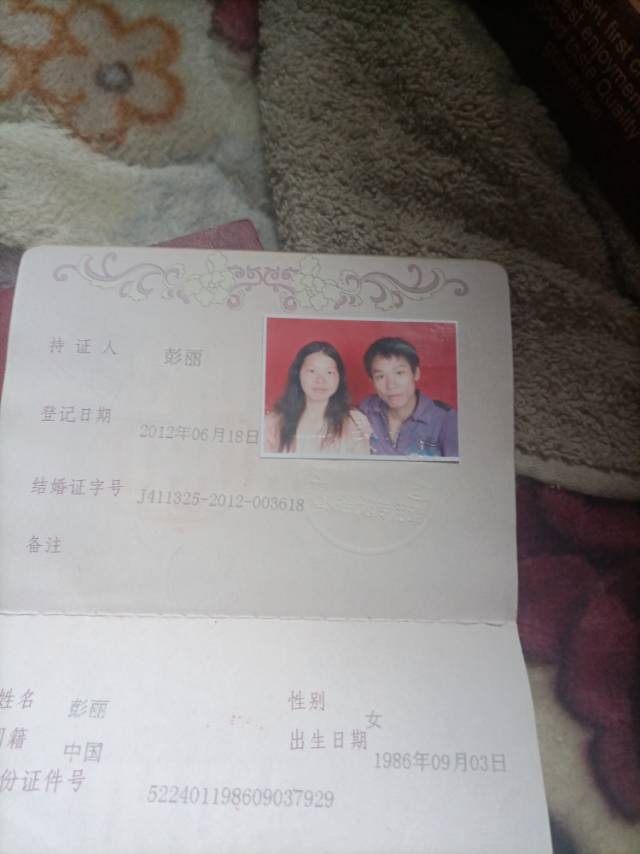 持证人 彭丽
登记日期 2012年06月18日
结婚证字号 J411325-2012-003618
备注
姓名 彭丽 性别 女
国籍 中国 出生日期 1986年09月03日
份证件号 522401198609037929
ent first
est enjoyment
Quality